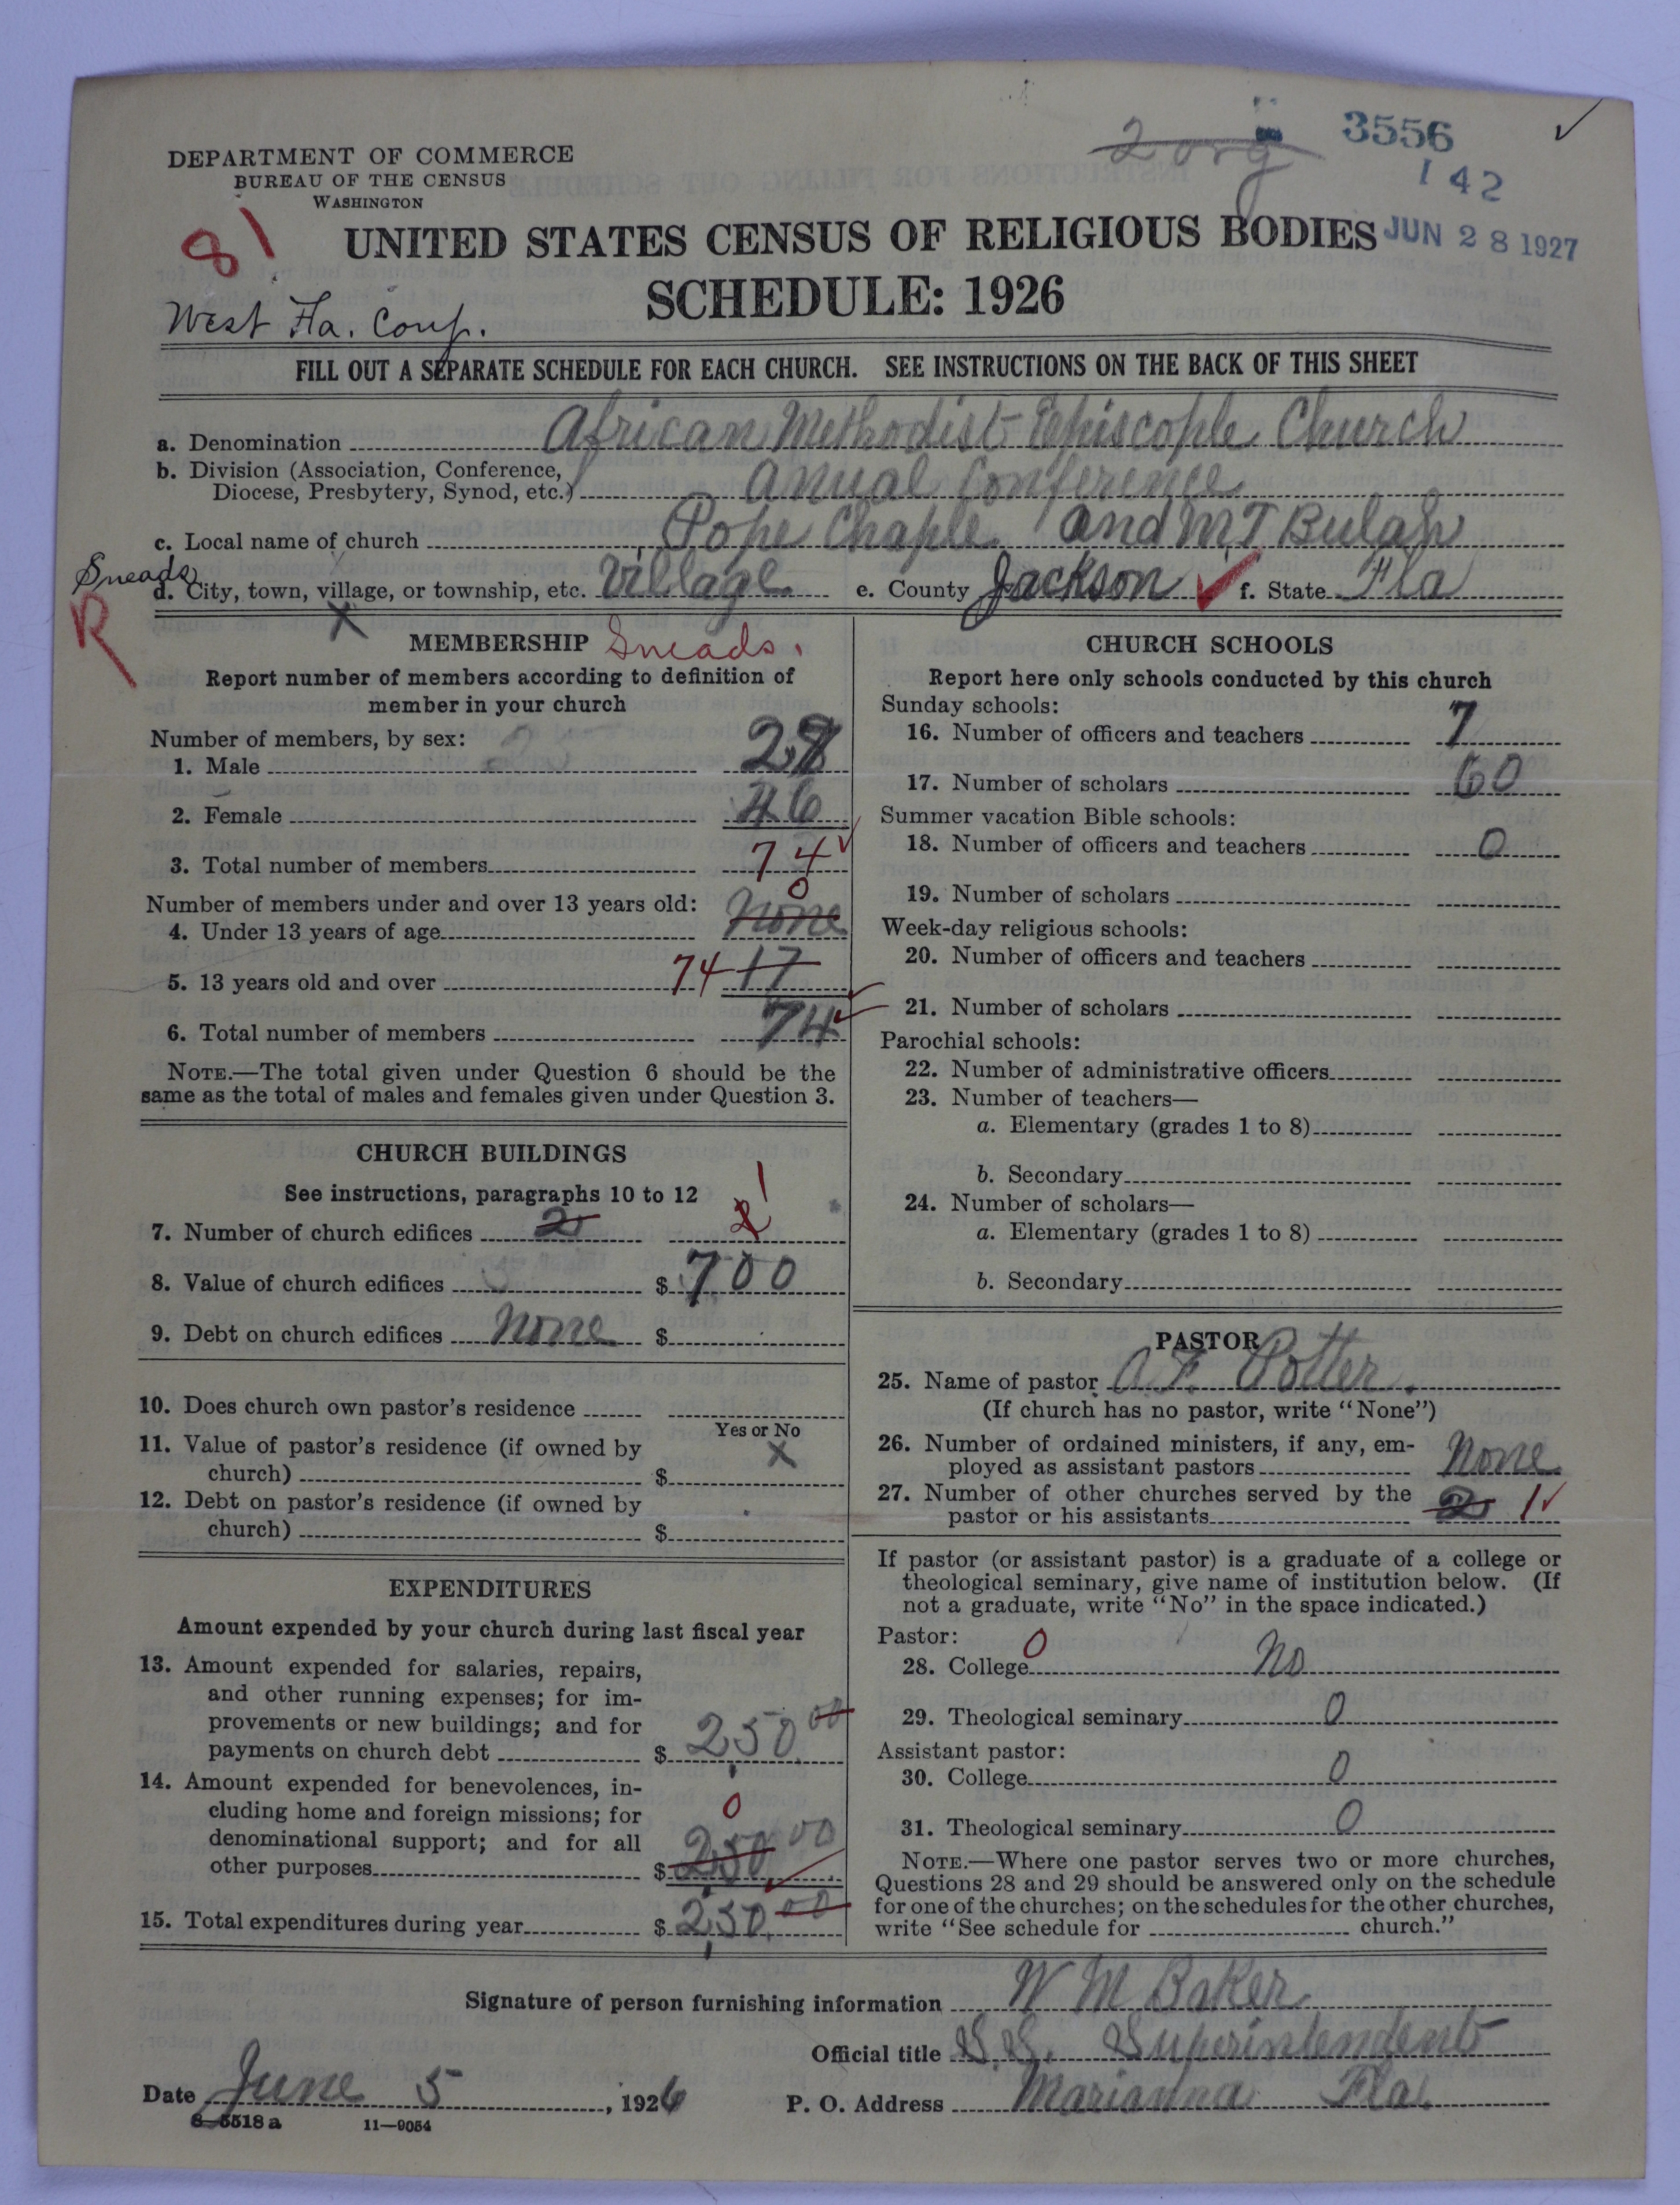 2 org
3556
142
DEPARTMENT OF COMMERCE
BUREAU OF THE CENSUS
WASHINGTON
81
UNITED STATES CENSUS OF RELIGIOUS BODIES
JUN 28 1927
SCHEDULE: 1926
West Fla. Conf.
FILL OUT A SEPARATE SCHEDULE FOR EACH CHURCH. SEE INSTRUCTIONS ON THE BACK OF THIS SHEET
a. Denomination African Methodist Episcople Church
b. Division (Association, Conference,
Diocese, Presbytery, Synod, etc.) Anual Conference
c. Local name of church Pope Chaple and MT Bulah
Sneads
d. City, town, village, or township, etc. Village e. County Jackson f. State Fla
R
X
MEMBERSHIP Sneads.
Report number of members according to definition of
member in your church
Number of members, by sex:
1. Male 28
2. Female 46
3. Total number of members 74
Number of members under and over 13 years old: 0
4. Under 13 years of age None
5. 13 years old and over 74 17
6. Total number of members 74
NOTE.—The total given under Question 6 should be the
same as the total of males and females given under Question 3.
CHURCH BUILDINGS
See instructions, paragraphs 10 to 12
7. Number of church edifices 2 2 1
8. Value of church edifices $ 700
9. Debt on church edifices None $
10. Does church own pastor's residence
Yes or No
11. Value of pastor's residence (if owned by X
church) $
12. Debt on pastor's residence (if owned by
church) $
EXPENDITURES
Amount expended by your church during last fiscal year
13. Amount expended for salaries, repairs,
and other running expenses; for im-
provements or new buildings; and for
payments on church debt $ 250.00
14. Amount expended for benevolences, in-
cluding home and foreign missions; for 0
denominational support; and for all
other purposes $ 250.00
15. Total expenditures during year $ 250.00
CHURCH SCHOOLS
Report here only schools conducted by this church
Sunday schools:
16. Number of officers and teachers 7
17. Number of scholars 60
Summer vacation Bible schools:
18. Number of officers and teachers 0
19. Number of scholars
Week-day religious schools:
20. Number of officers and teachers
21. Number of scholars
Parochial schools:
22. Number of administrative officers
23. Number of teachers—
a. Elementary (grades 1 to 8)
b. Secondary
24. Number of scholars—
a. Elementary (grades 1 to 8)
b. Secondary
PASTOR
25. Name of pastor A. F. Potter.
(If church has no pastor, write "None")
26. Number of ordained ministers, if any, em-
ployed as assistant pastors None
27. Number of other churches served by the
pastor or his assistants 2 1
If pastor (or assistant pastor) is a graduate of a college or
theological seminary, give name of institution below. (If
not a graduate, write "No" in the space indicated.)
Pastor: 0
28. College No
29. Theological seminary 0
Assistant pastor:
30. College 0
31. Theological seminary 0
NOTE.—Where one pastor serves two or more churches,
Questions 28 and 29 should be answered only on the schedule
for one of the churches; on the schedules for the other churches,
write "See schedule for church."
Signature of person furnishing information W M Baker
Official title S.S. Superintendent
Date June 5, 1926 P. O. Address Marianna Fla.
8-5518 a 11—9054